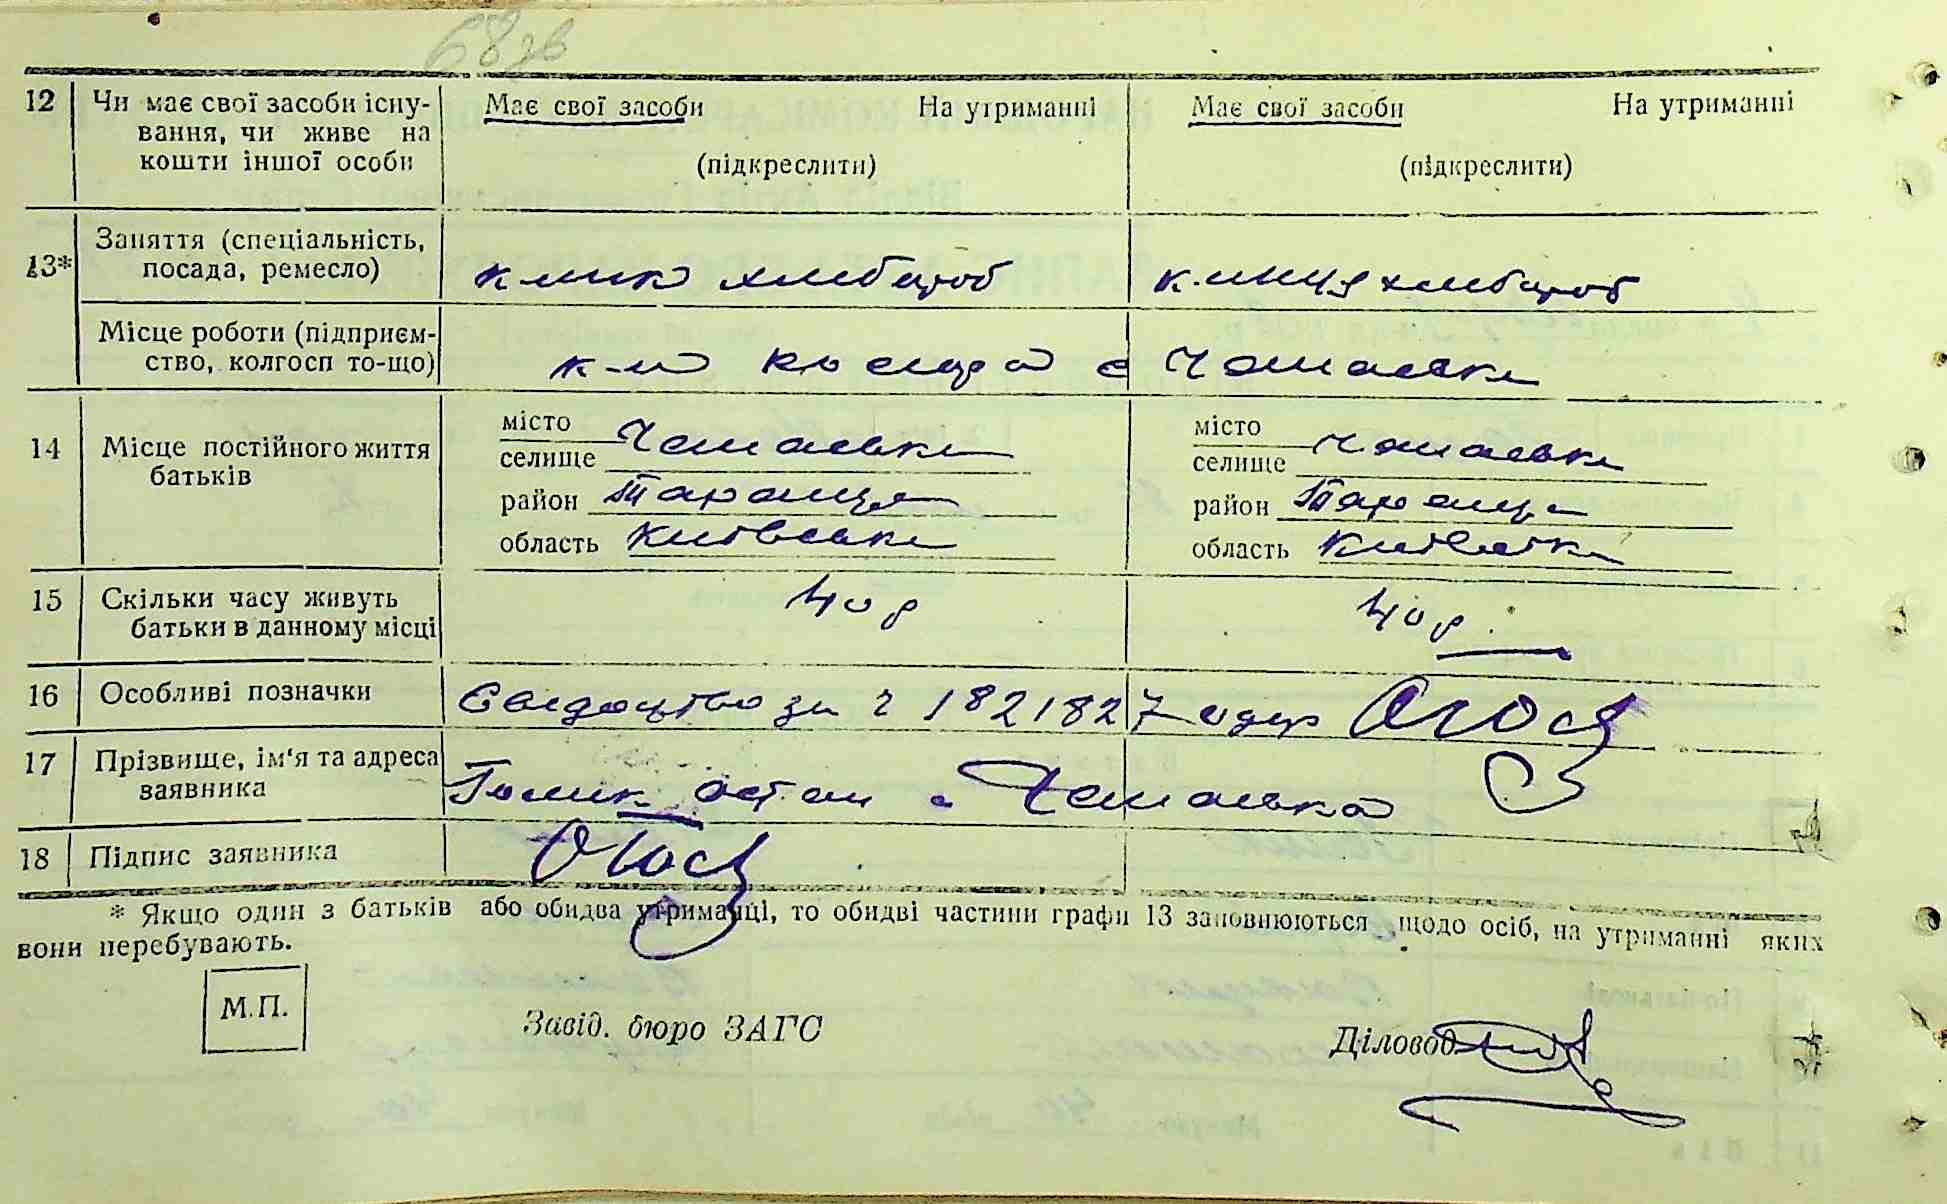 68зв
12 Чи має свої засоби існу- Має свої засоби На утриманні Має свої засоби На утриманні
вання, чи живе на
кошти іншої особи (підкреслити) (підкреслити)
13* Заняття (спеціальність,
посада, ремесло) к-ник хлібороб к-ниця хлібороб
Місце роботи (підприєм-
ство, колгосп то-що) к-п Косіора с
14 Місце постійного життя
батьків
місто місто
селище селище
район Тараща район Тараща
область Київська область Київська
15 Скільки часу живуть 40 р 40 р.
батьки в данному місці
16 Особливі позначки Свідоцтво за ч 1821827 одер
17 Прізвище, ім'я та адреса
заявника Остап с
18 Підпис заявника
* Якщо один з батьків або обидва утриманці, то обидві частини графи 13 заповнюються щодо осіб, на утриманні яких
вони перебувають.
М.П.
Завід. бюро ЗАГС Діловод